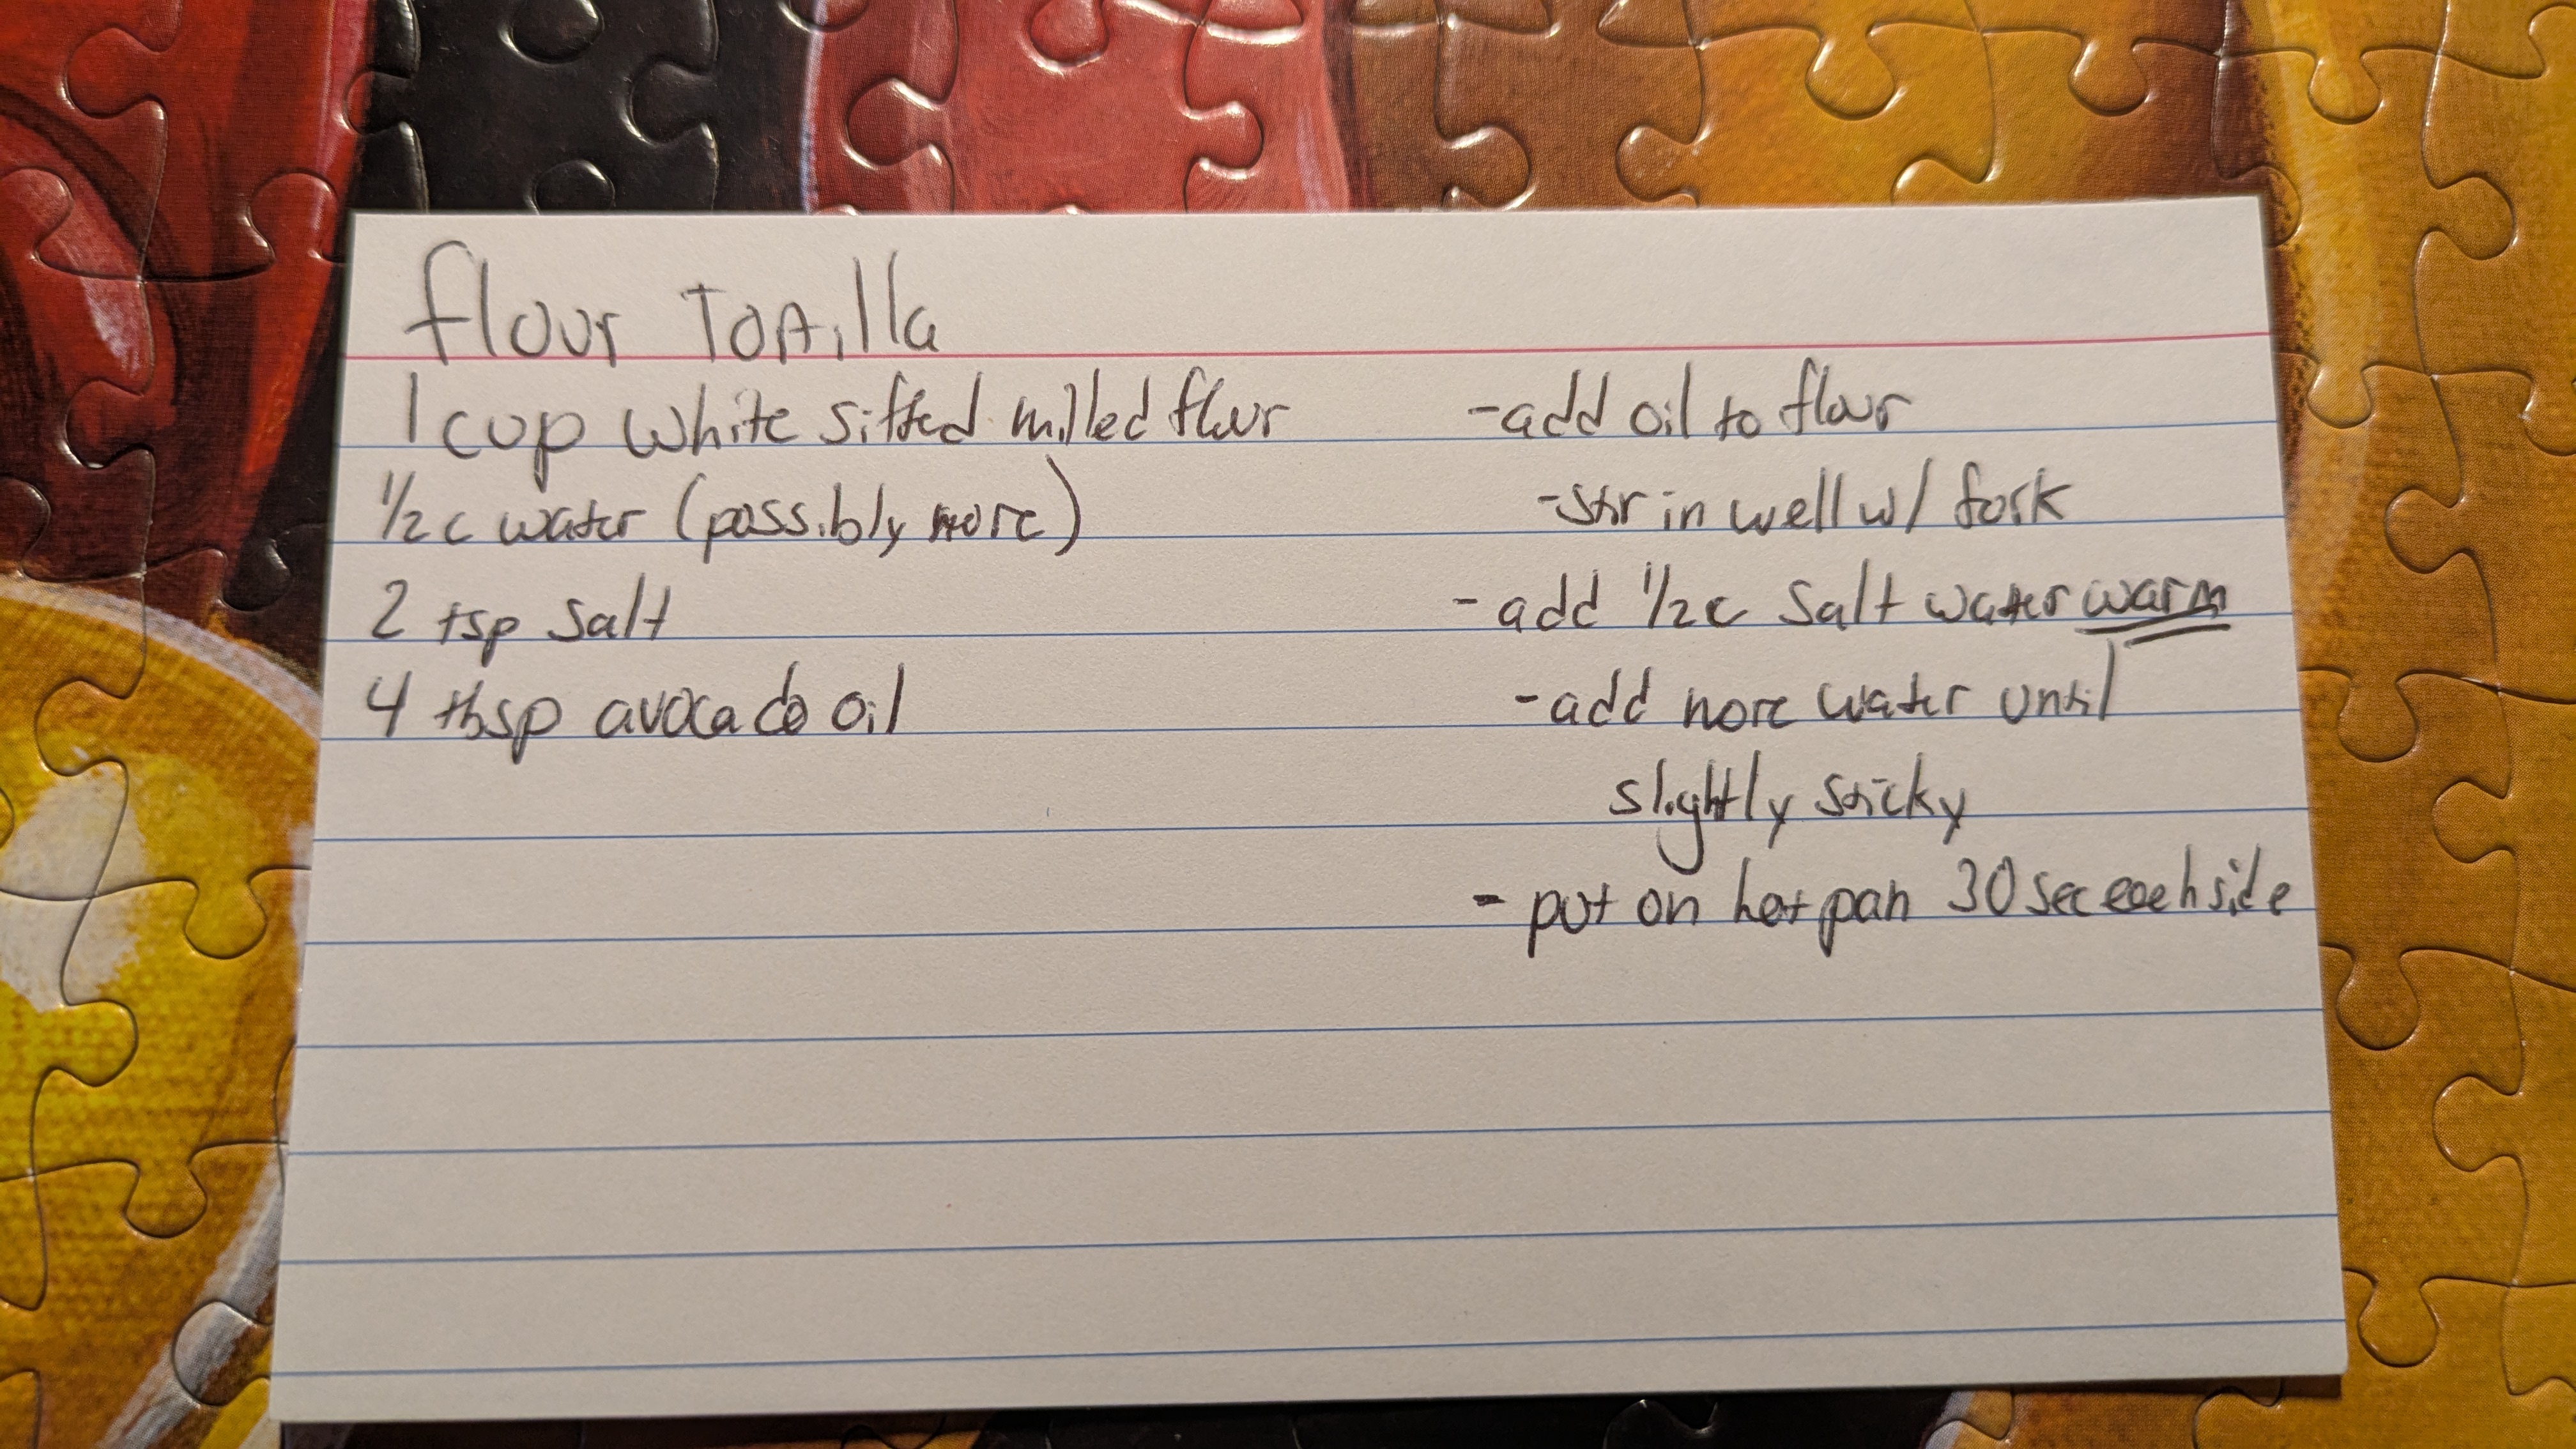 flour Tortilla
1 cup white sifted milled flour
1/2 c water (possibly more)
2 tsp salt
4 tbsp avocado oil
-add oil to flour
-stir in well w/ fork
-add 1/2c salt water warm
-add more water until
slightly sticky
- put on hot pan 30 sec each side